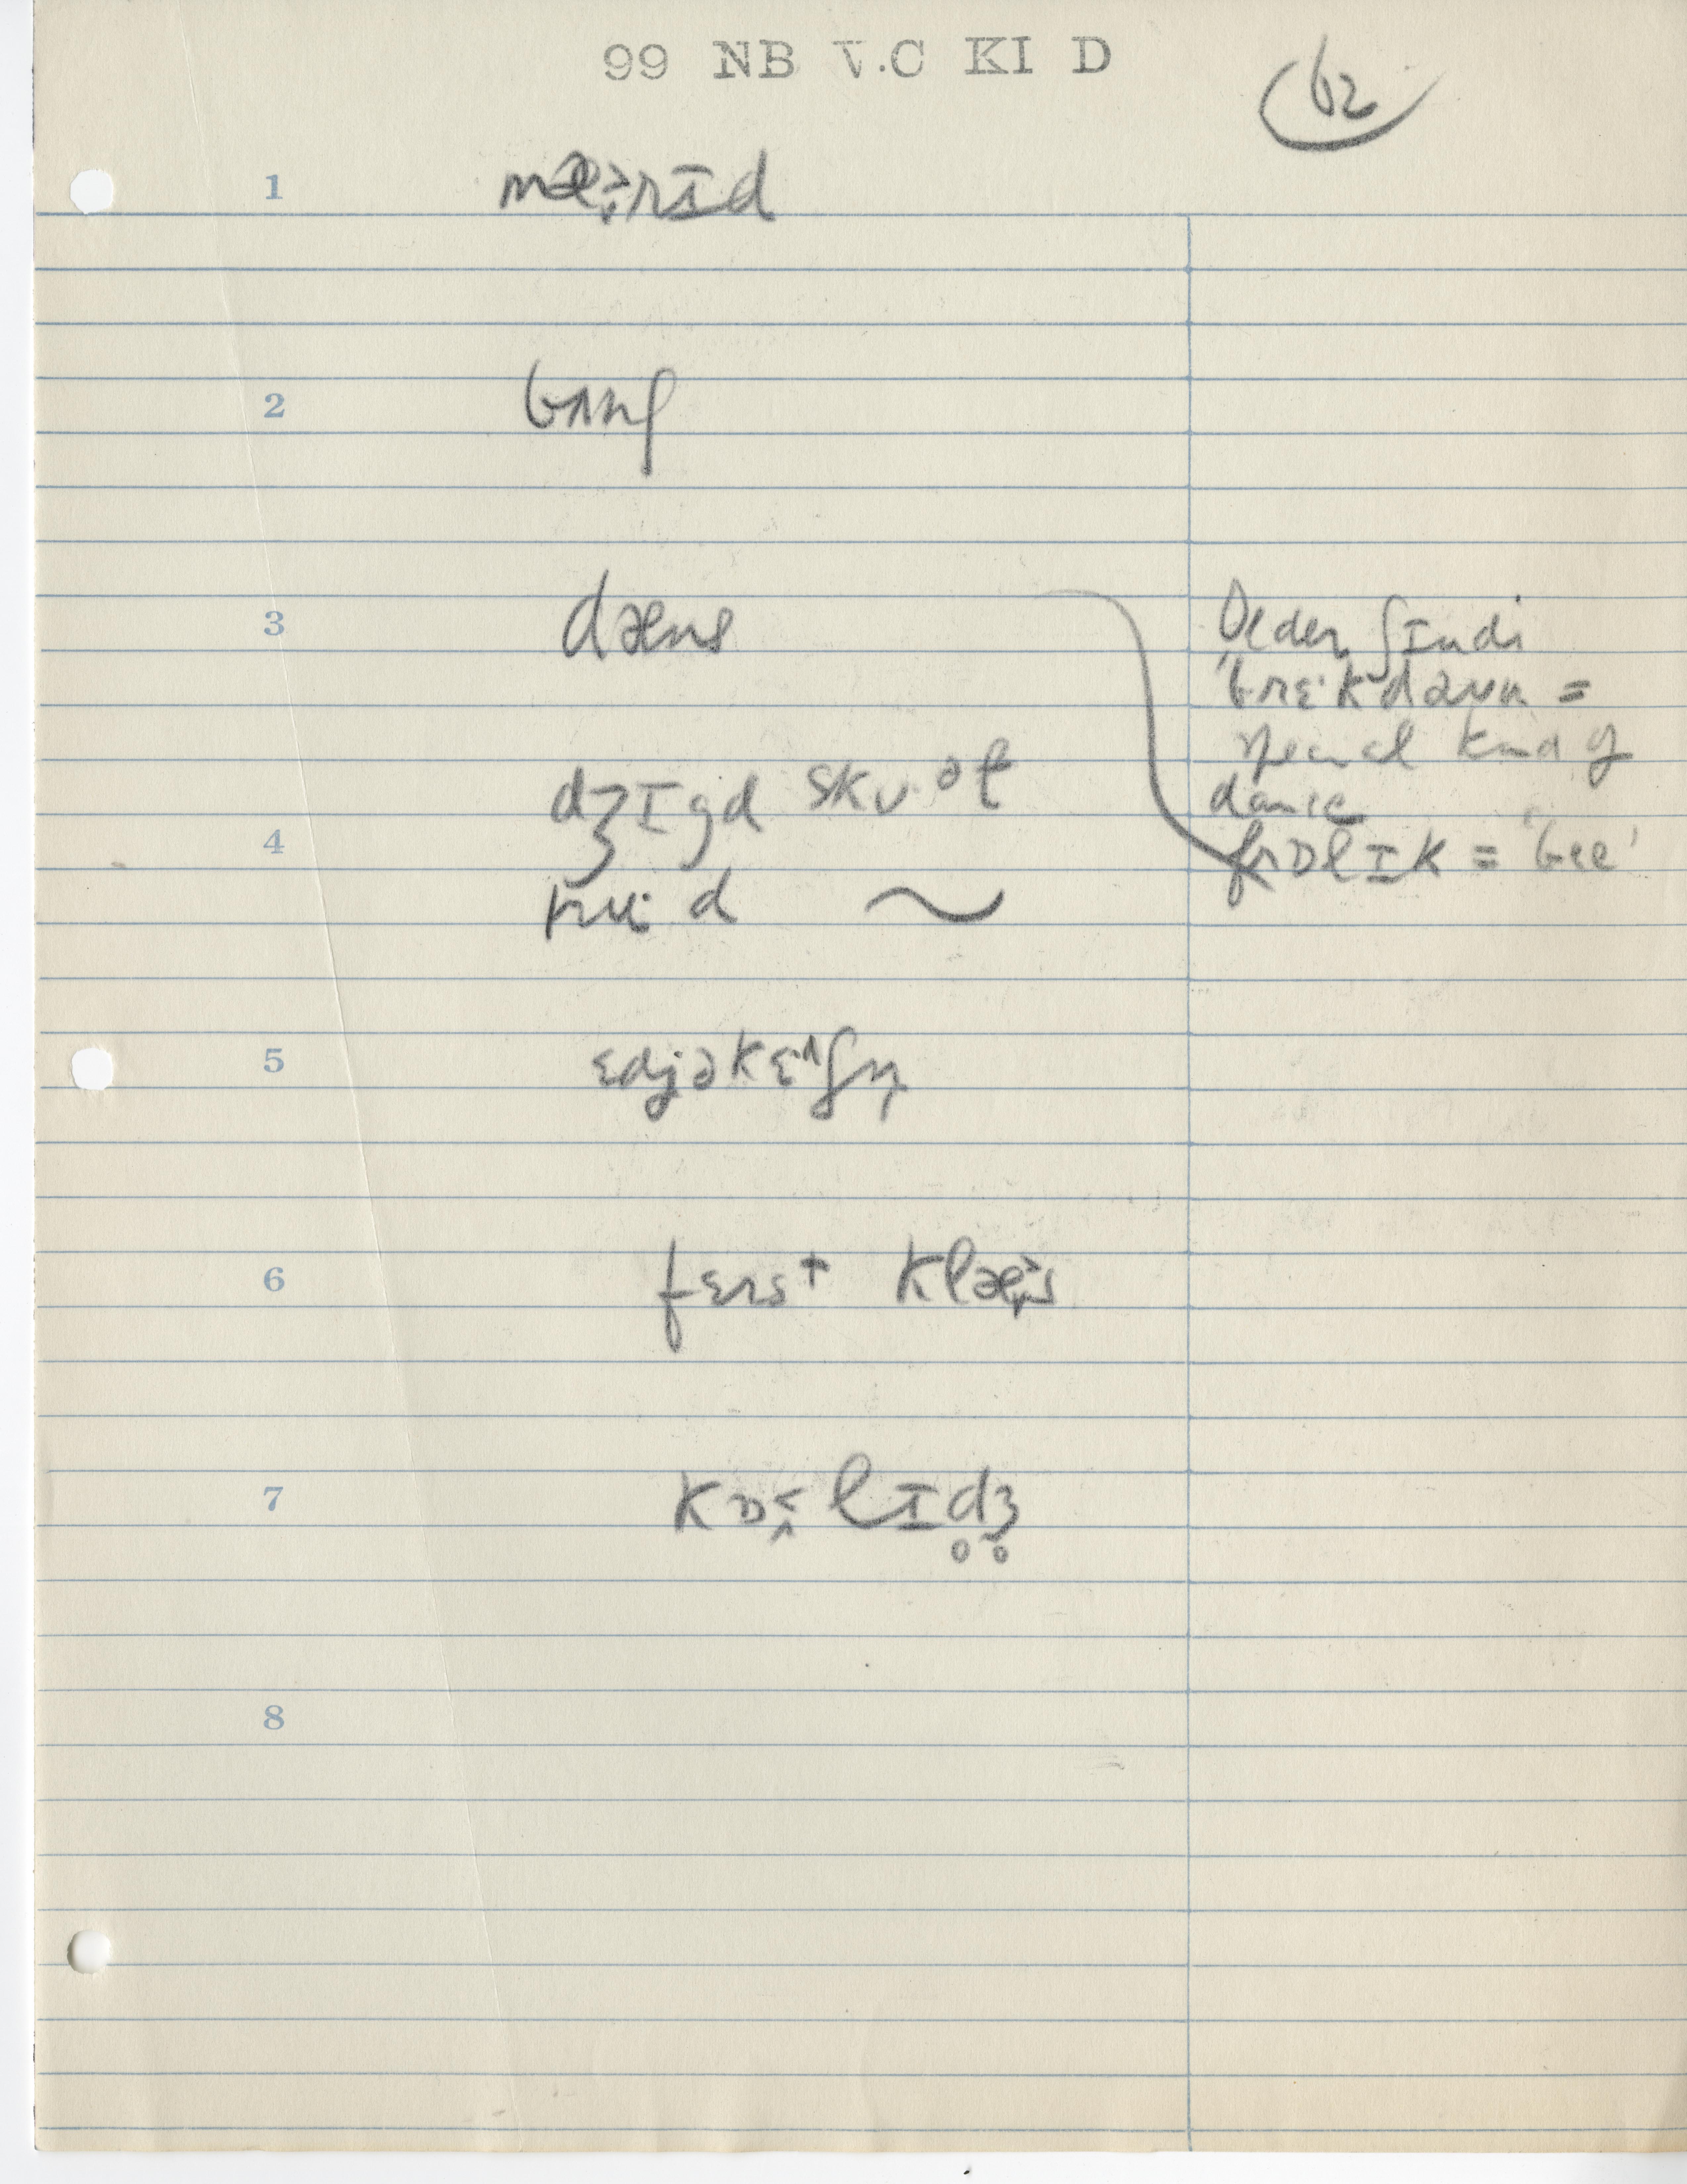 99 NB V.C KI D
62
1 mæ˔·rɪd
2 bʌnʃ
3 dæns
Older ʃɪndi
ˈbrɛ·kdaun =
special kind of
dance
frɒlɪk = 'bee'
4 dʒɪgd skuˑəl
~
5 ɛdjəkɛ·ɪʃn̩
6 fɛrst klæs
7 kɒlɪd̥ʒ̥
8